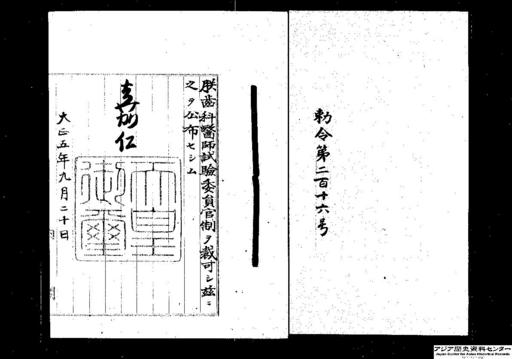 勅令第二百十六号
朕歯科醫師試驗委員官制ヲ裁可シ茲ニ
之ヲ公布セシム
嘉仁
天皇御璽
大正五年九月二十日
アジア歴史資料センター
Japan Center for Asian Historical Records